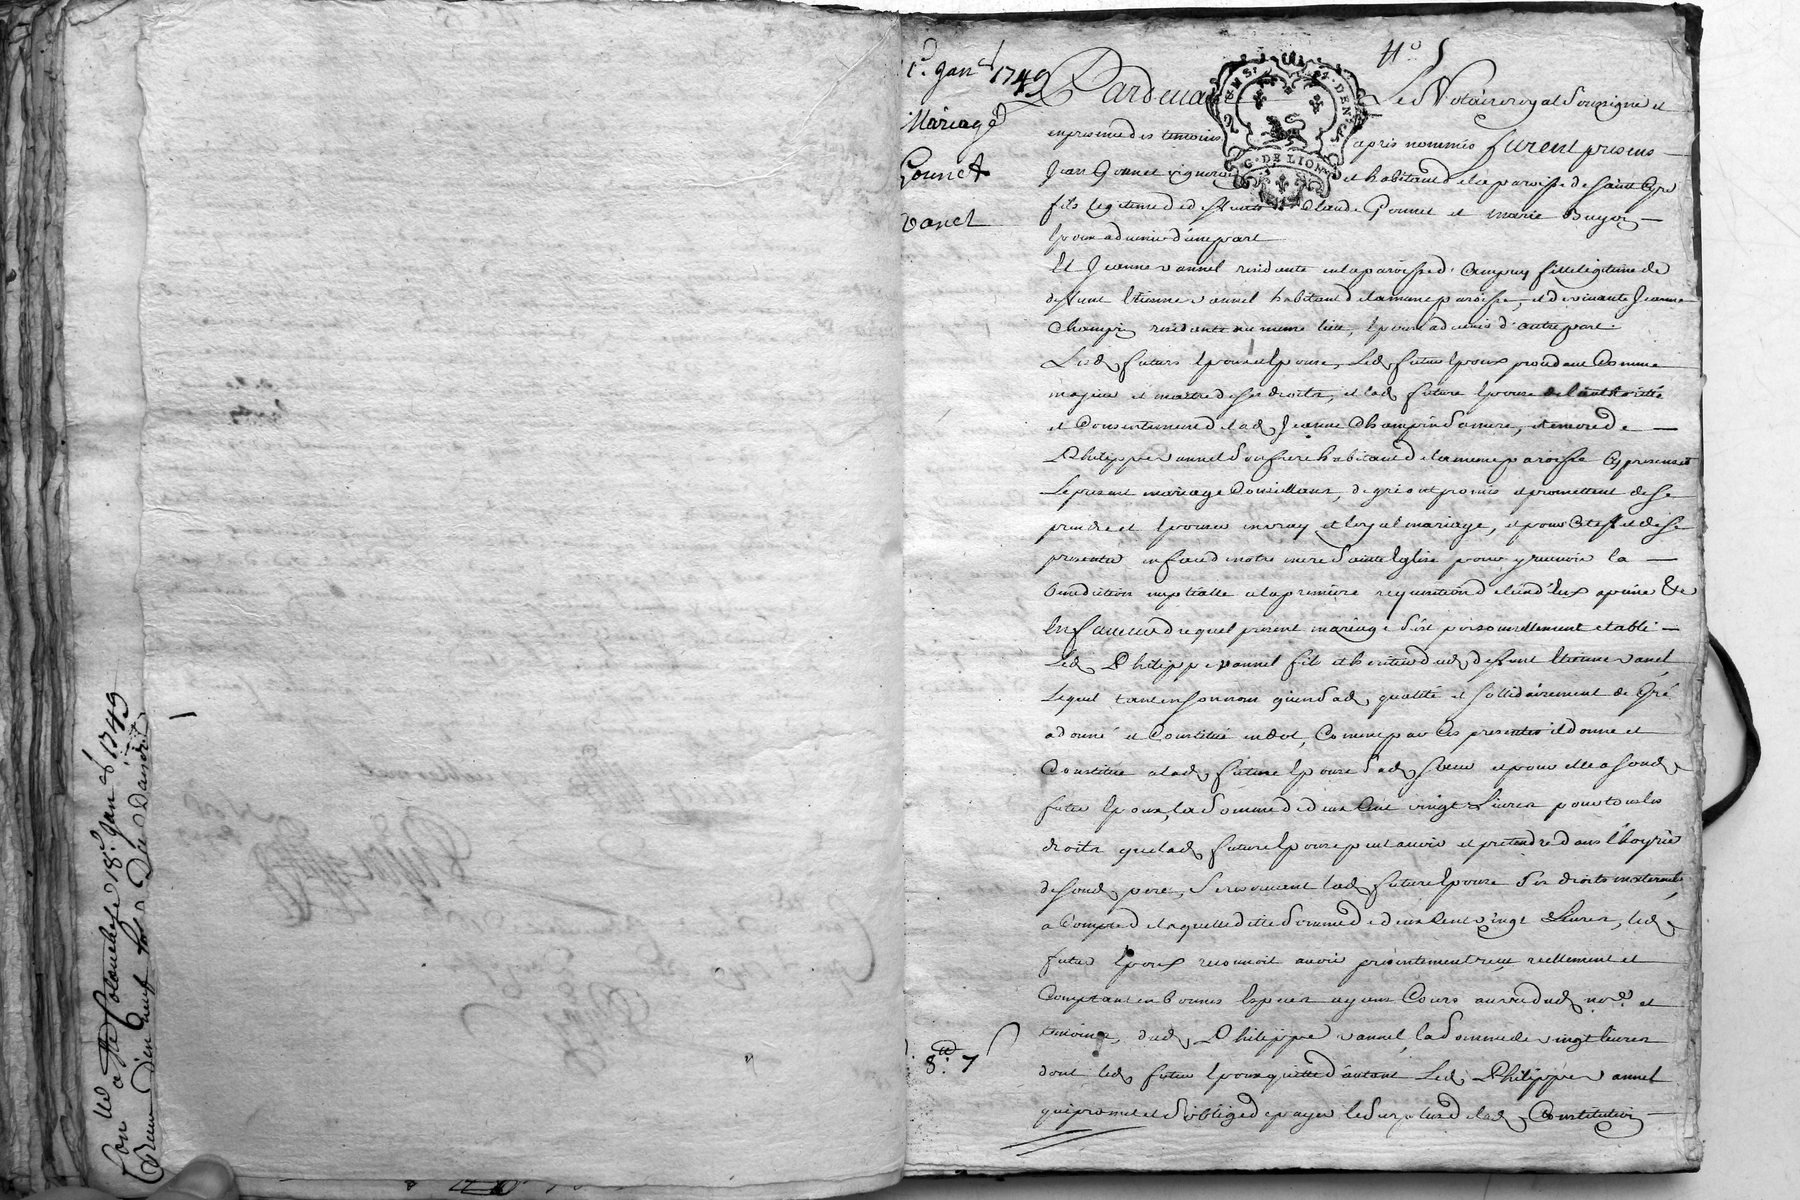 Con lle a Ste Colombe le 18e Janer 1749
1er Janr 1749
Mariage
Gonnet
vanel
No 5
G. DE LION
Pardevant Le Notaire royal Soussigné et
en presence des temoins apres nommés furent presens
Jean Gonnet vigneron et habitant de la paroisse de Saint Cyr
fils legitime de deffunt Claude Gonnet et marie Buyer
Epoux advenir d'une part
Et Jeanne vannel residante en la paroisse d'Ampuy fille legitime de
deffunt Etienne vannel habitant de la meme paroisse, et de vivante Jeanne
Champin residante au meme lieu, Epouse advenir d'autre part.
Lesd futurs Epoux et Epouse, Led futur Epoux procedant Comme
majeur et maitre de ses droits, et lad future Epouse de l'authorité
et Consentement de lad Jeanne Champin Sa mere, et encore de
Philippe vannel Son frere habitant de la meme paroisse Cy presens et
Le present mariage Conseillans, de gré ont promis et promettent de Se
prendre et Epouser en vray et loyal mariage, et pour Cet effet de Se
presenter en face de notre mere Sainte Eglise pour y recevoir la
Benediction nuptialle a la premiere requisition de l'un d'Eux a peine &c
En faveur duquel present mariage S'est personnellement etabli
Led Philippe vannel fils et heritier dud deffunt Etienne vanel
Lequel tant en Son nom qu'en Sad qualité et Sollidairement de Gré
a donné et Constitué en dot, Comme par Ces presentes il donne et
Constitue a lad future Epouse Sad Soeur et pour elle a Sond
futur Epoux, la Somme de deux Cent vingt Livres pour tous les
droits que lad future Epouse peut avoir et pretendre dans l'hoyrie
de Sond pere, Se reservant lad future Epouse Ses droits maternels
a Compte de laquelle ditte Somme de deux Cent vingt Livres, led
futur Epoux reconnoit avoir presentement reçu reellement et
Comptant en bonnes Especes ayant Cours au vu dud nore et
temoins, dud Philippe vannel, la Somme de vingt livres
dont led futur Epoux quitte d'autant Led Philippe vannel
qui promet et S'oblige de payer le Surplus de lad Constitution